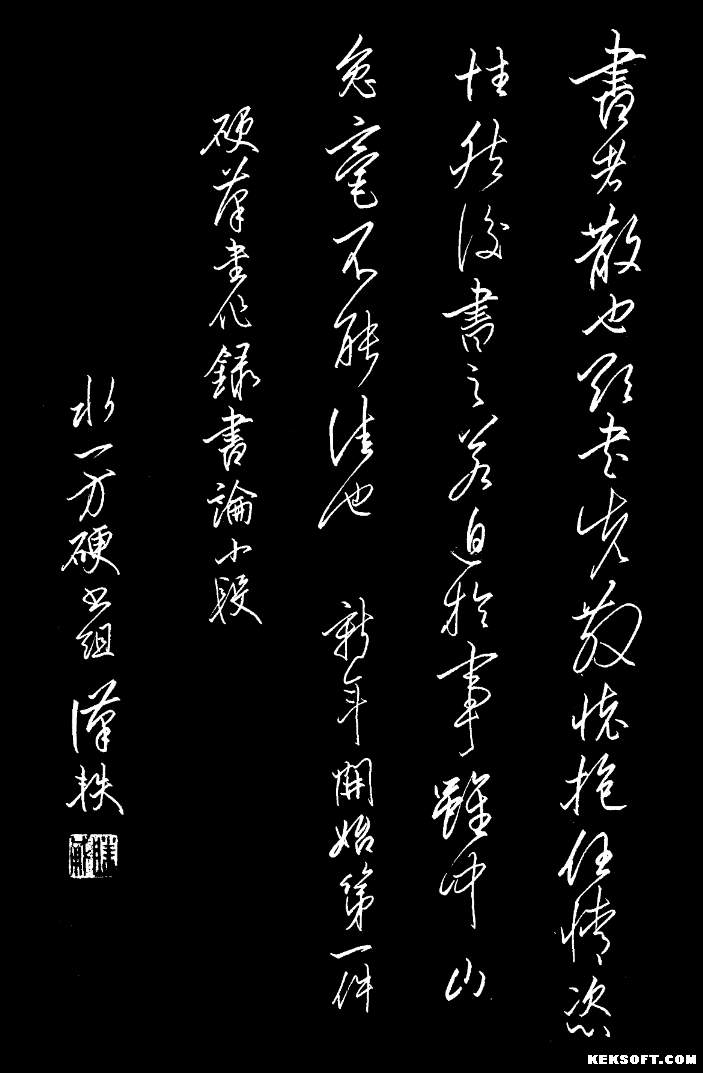 書者散也欲書先散懷抱任情恣
性然後書之若迫於事雖中山
兔毫不能佳也 新年開始第一件
硬筆書作錄書論小段
水一方硬书組 漢軼
KEKSOFT.COM